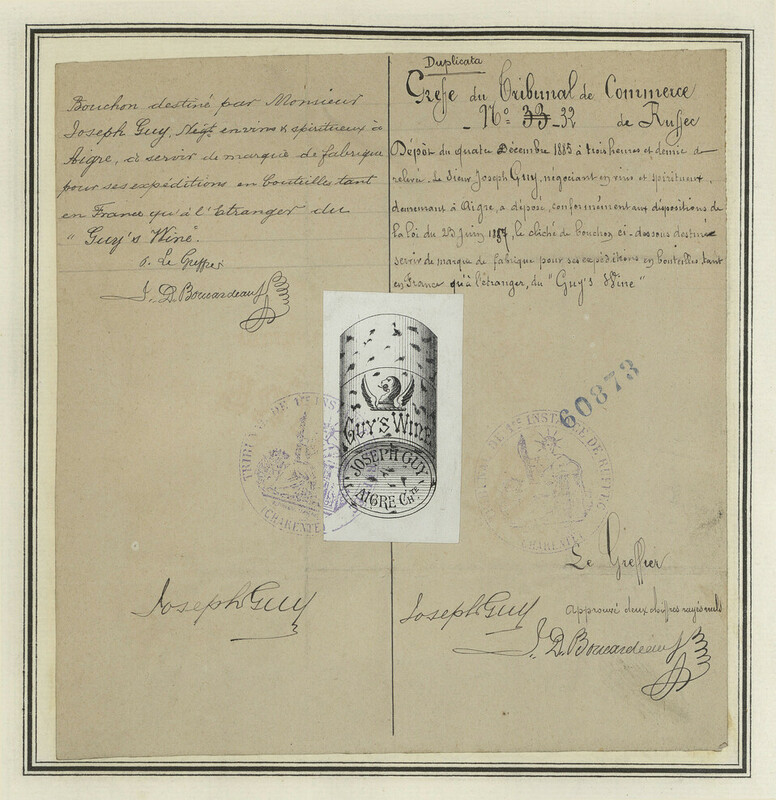 Bouchon destiné par Monsieur
Joseph Guy, Négt en vins & spiritueux à
Aigre, à servir de marque de fabrique
pour ses expéditions en bouteilles tant
en France qu'à l'Etranger du
"Guy's Wine".
Le Greffier
J. D. Bouardeau
Duplicata
Greffe du Tribunal de Commerce
N° 33 32 de Ruffec
Dépôt du quatre Décembre 1885 à trois heures et demie de
relevé. Le Sieur Joseph Guy, négociant en vins et spiritueux,
demeurant à Aigre, a déposé, conformément aux dispositions de
la loi du 23 Juin 1857, le cliché de bouchon ci-dessous destiné
servir de marque de fabrique pour ses expéditions en bouteilles, tant
en France qu'à l'étranger, du "Guy's Wine"
GUY'S WINE
JOSEPH GUY
AIGRE CHTE
TRIBUNAL DE 1RE INSTANCE
(CHARENTE)
60873
DE 1RE INSTANCE DE RUFFEC
(CHARENTE)
Joseph Guy
Le Greffier
Joseph Guy
approuvé deux chiffres rayés nuls
J. D. Bouardeau